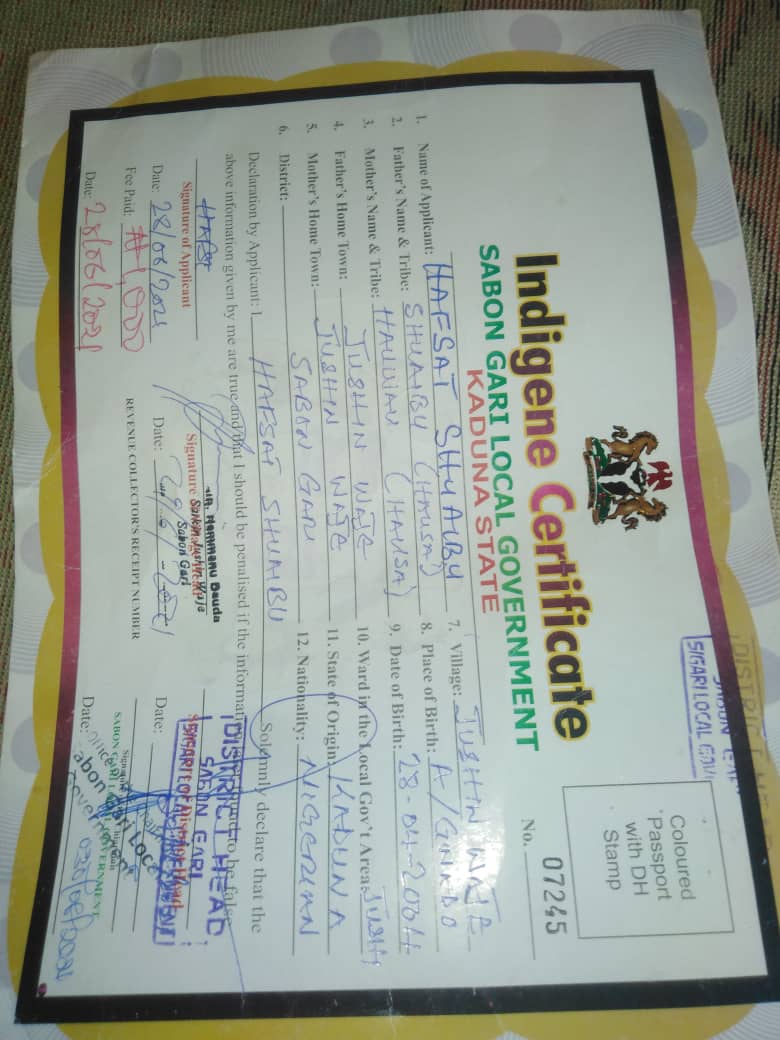 Indigene Certificate
SABON GARI LOCAL GOVERNMENT
KADUNA STATE
DISTRICT HEAD
SABON GARI
S/GARI LOCAL GOV
Coloured
Passport
with DH
Stamp
No. 07245
1. Name of Applicant: HAFSAT SHUAIBU
2. Father's Name & Tribe: SHUAIBU (HAUSA)
3. Mother's Name & Tribe: HAUWAU (HAUSA)
4. Father's Home Town: JUSHIN WAJE
5. Mother's Home Town: JUSHIN WAJE
6. District: SABON GARI
7. Village: JUSHIN WAJE
8. Place of Birth: A/GWADO
9. Date of Birth: 28-04-2004
10. Ward in the Local Gov't Area: JUSHI
11. State of Origin: KADUNA
12. Nationality: NIGERIAN
Declaration by Applicant: I HAFSAT SHUAIBU Solemnly declare that the
above information given by me are true and that I should be penalised if the information to be false
HAFSAT
Signature of Applicant
Date: 28/06/2021
Fee Paid: ₦1,000
Date: 28/06/2021
Alh. Mammanu Dauda
Sarkin Jushin Waje
Sabon Gari
Signature
Date: 29/ - 2021
REVENUE COLLECTOR'S RECEIPT NUMBER
DISTRICT HEAD
SABON GARI
Date:
SABON GARI LOCAL GOVERNMENT
Date: